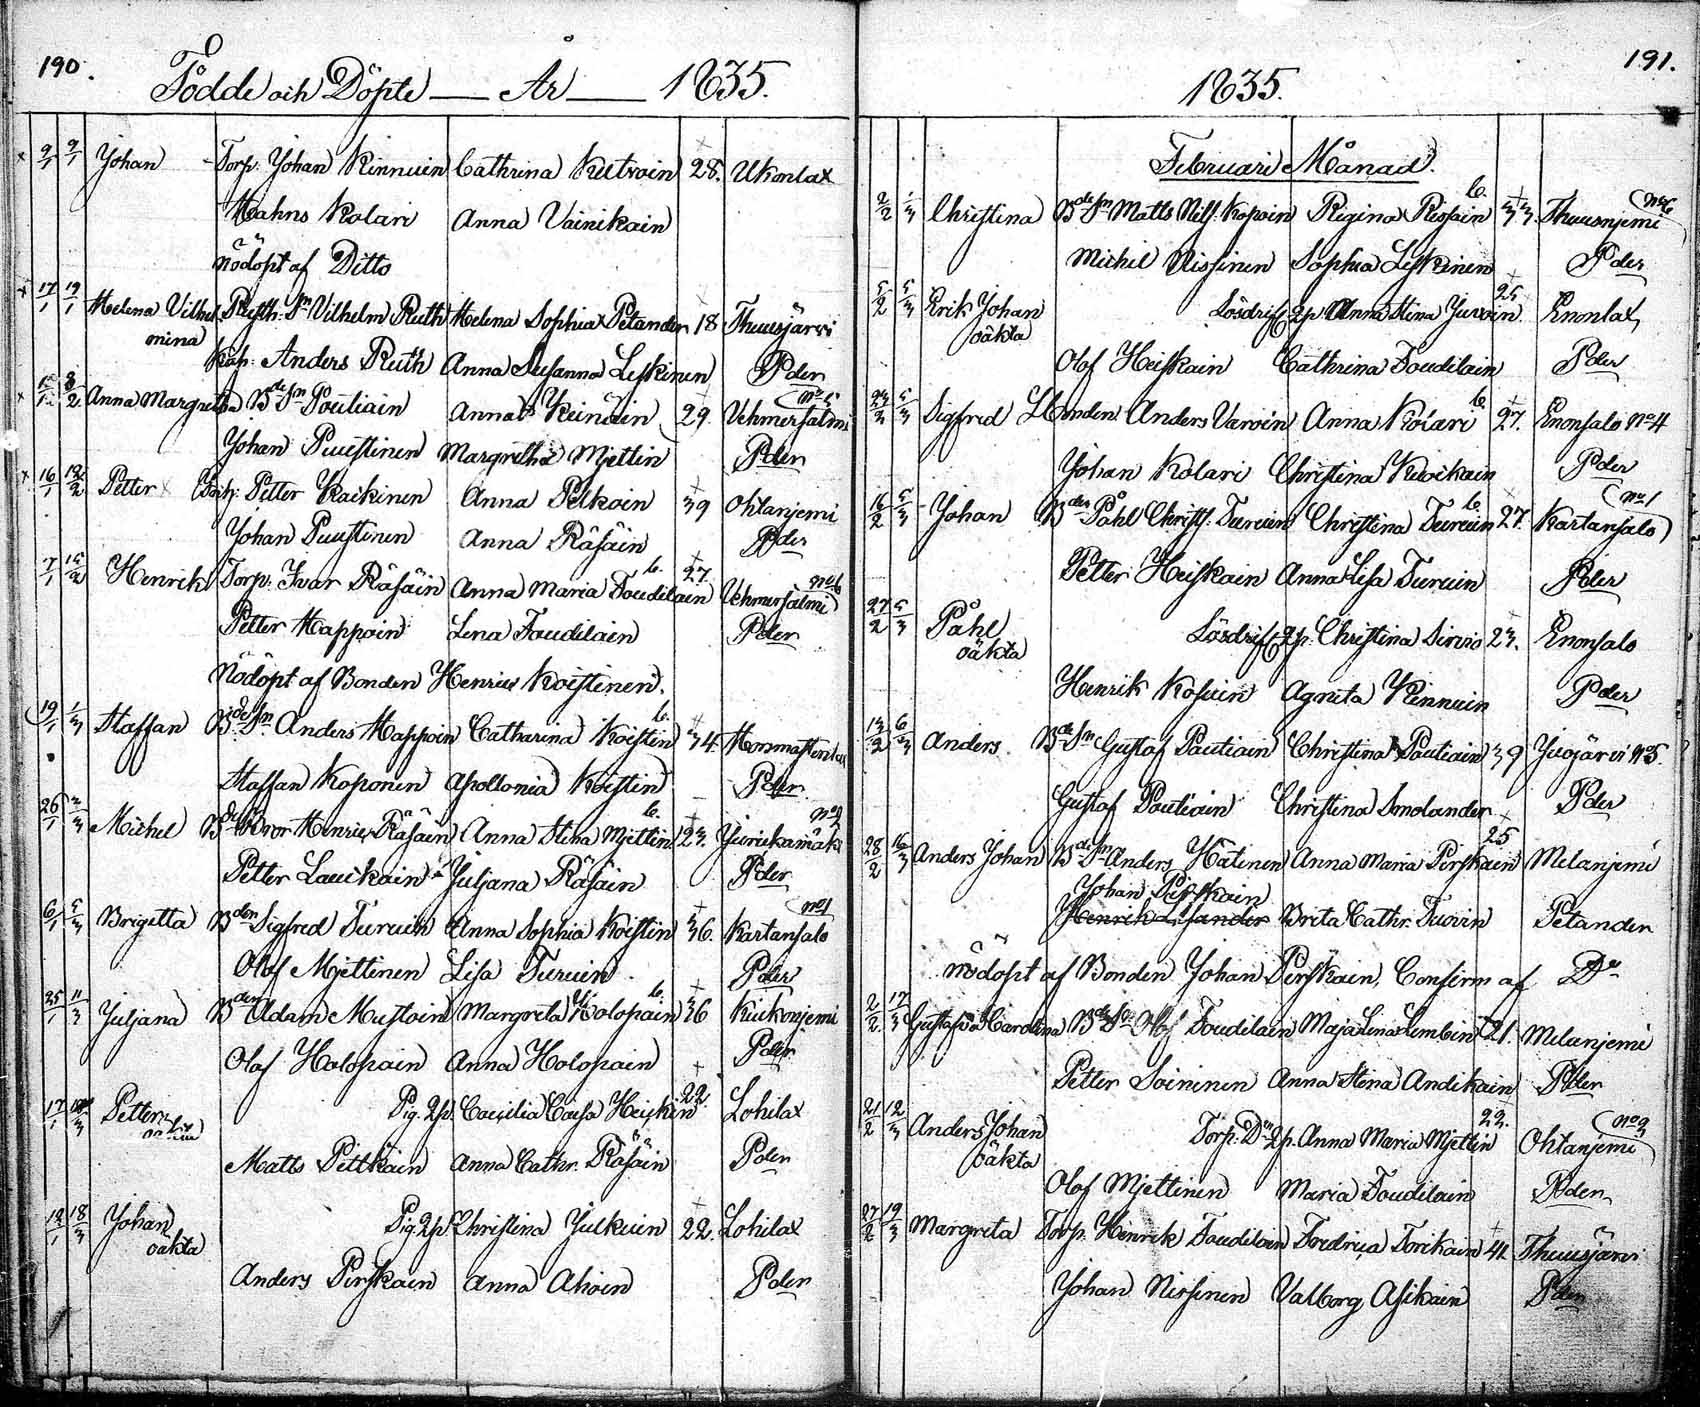 190.
Födde och Döpte — År — 1835.
9/1 9/1 Johan Torp. Johan Kinnuin Cathrina Kutvoin 28. Ukonlax
Hahns Kolari Anna Vainikain
nödöpt af Ditto
17/1 19/1 Helena Vilhel- Vilhelm Ruth Helena Sophia Petander 18 Thuusjärvi
mina
Kap: Anders Ruth Anna Susanna Leskinen Pder
8/2 Anna Margretha Bde Sn Poutiain Anna Keinäin 29. Vehmersalmi No 5
Johan Puustinen Margretha Mjettin Pder
16/1 Petter Petter Kaikinen Anna Pelkoin 39 Ohtanjemi
Johan Puustinen Anna Räsäin Pder
7/1 15/2 Henrik Torp. Ivar Räsäin Anna Maria Toudilain 27. Vehmersalmi No 6
Petter Happoin Lena Toudilain Pder
Nödöpt af Bonden Henric Koistinen.
19/1 1/3 Staffan Bde Sn Anders Happoin Catharina Koistin 34.
Staffan Koponen Apollonia Koistin Pder
26/1 Michel Bror Henric Räsäin Anna Stina Mjettin 23. Jurikamäki No 2
Petter Lauikain Juljana Räsäin Pder
6/1 5/3 Brigetta Bden Sigfred Turuin Anna Sophia Koistin 36. Kartansalo No 1
Olof Mjettinen Lisa Turuin Pder
25/1 11/3 Juljana Bden Adam Mustoin Margreta Holopain 36 Kuikonjemi
Olof Holopain Anna Holopain Pder
17/1 Petter Pig. 2p. Caecilia Caisa Heiskin 22. Lohilax
Matts Pittkäin Anna Cathr. Räsäin Pder
12/1 18/3 Johan Pig. 2p Christina Julkuin 22. Lohilax
oäkta
Anders Pirskain Anna Ahoin Pder
191.
1835.
Februari Månad.
2/2 1/3 Christina Bde Sn Matts Nilss. Kopoin Regina Riosain 33. Thuusnjemi No 6
Michel Nissinen Sophia Leskinen Pder
5/2 5/3 Erik Johan Lösdrif 2p Anna Stina Juvoin 25 Enonlax
oäkta
Olof Heiskain Cathrina Toudilain Pder
23/2 5/3 Sigfred Anders Varoin Anna Koiari 27. Enonsalo No 4
Johan Kolari Christina Kevikain Pder
16/2 5/3 Johan Bden Påhl Christf. Turuin Christina Turuin 27. Kartansalo No 1
Petter Heiskain Anna Lisa Turuin Pder
27/2 5/3 Påhl Lösdrif 2p. Christina Sirvio 23. Enonsalo
oäkta
Henrik Kosuin Agneta Kinnuin Pder
13/2 6/3 Anders Bde Sn Gustaf Pautiain Christina Pautiain 39 Juojärvi No 5.
Gustaf Pautiain Christina Smolander Pder
28/2 16/3 Anders Johan Bde Sn Anders Hätinen Anna Maria Pirskain 25 Melanjemi
Johan Pirskain
Brita Cathr. Tuovin Petander
nödöpt af Bonden Johan Pirskain, Confirm af Do
2/2 17/3 Gustafva Carolina Bde So Olof Toudilain Maja Lina Lembin 21. Melanjemi
Petter Soininen Anna Stina Andikain Pder
21/2 12/3 Anders Johan Torp. Dr 2p. Anna Maria Mjettin 22. Ohtanjemi No 3
oäkta
Olof Mjettinen Maria Toudilain Pder
27/2 19/3 Margreta Torp. Henrik Toudilain Fredrica Torikain 42 Thuusjärvi
Johan Nissinen Valborg Asikain Pder